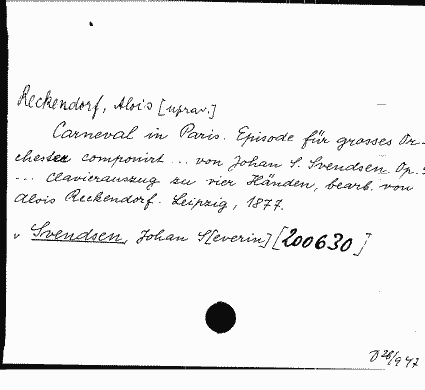 Reckendorf, Alois [uprav.]
Carneval in Paris. Episode für grosses Or-
chester componirt ... von Johan S. Svendsen. Op.
... Clavierauszug zu vier Händen, bearb. von
Alois Reckendorf. Leipzig, 1877.
v Svendsen, Johan S[everin] [200630]
28/947